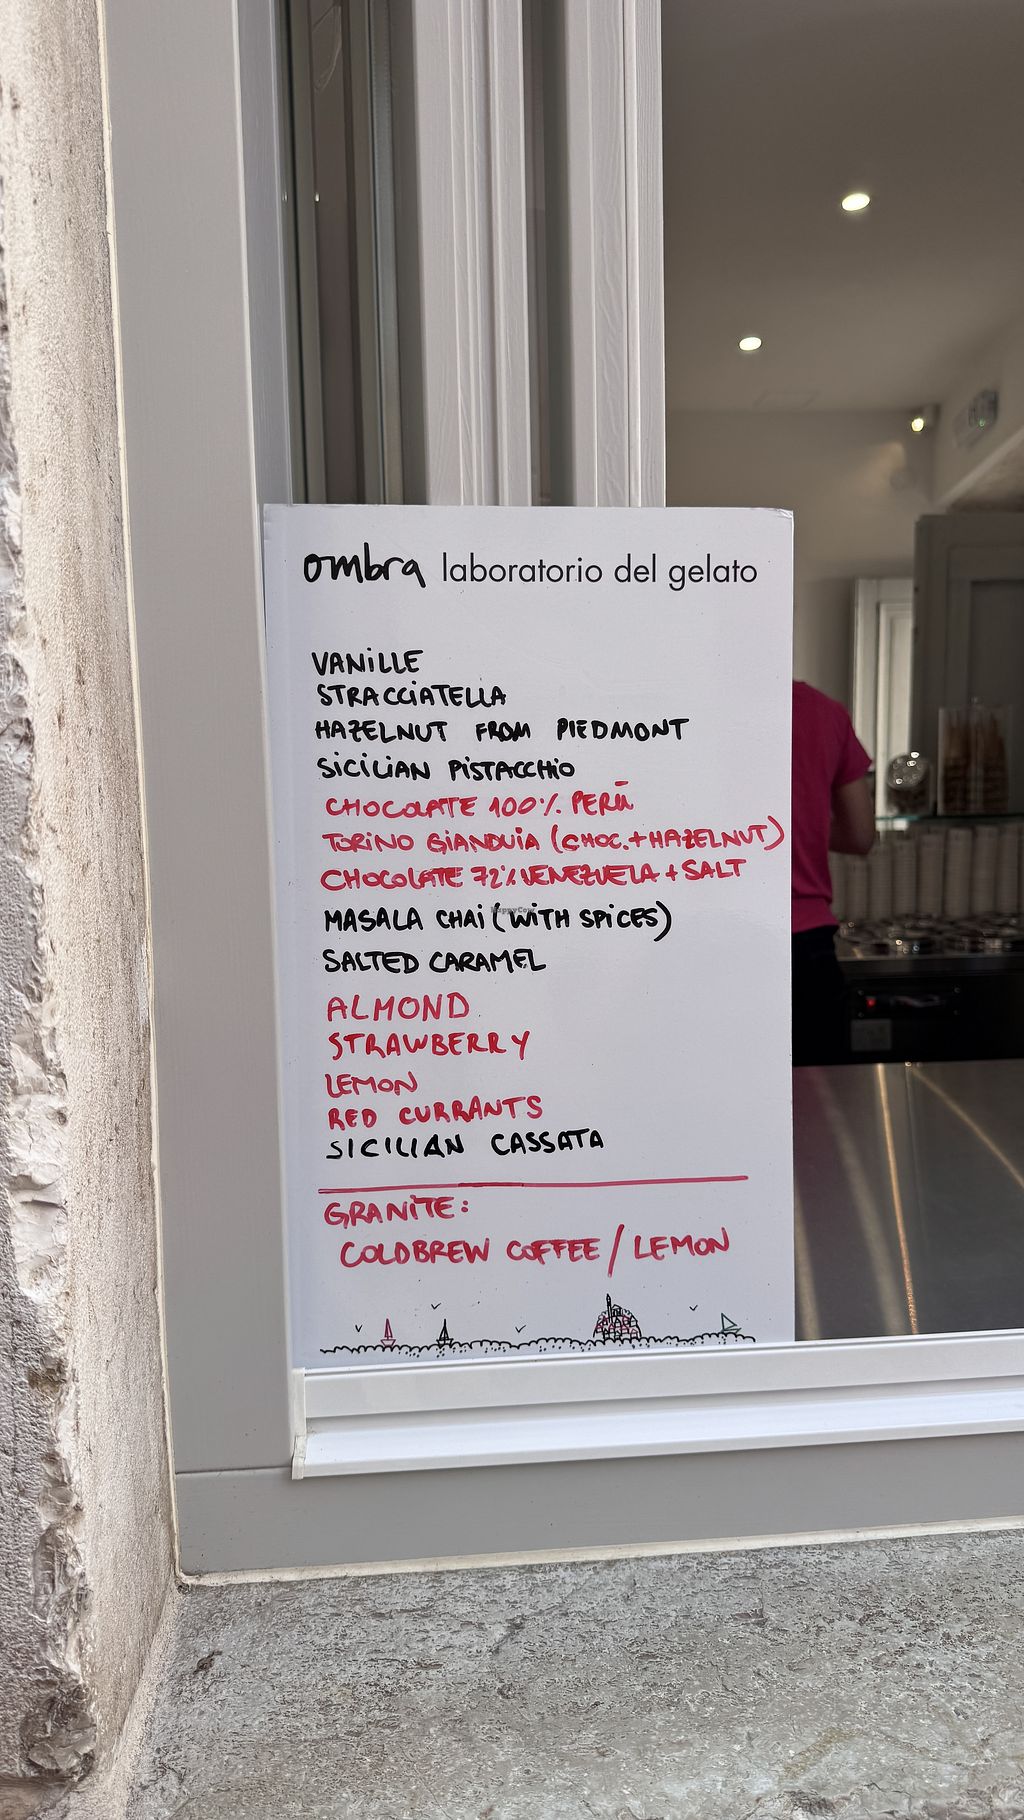 ombra laboratorio del gelato
VANiLLE
STRACCiATELLA
HAZELNUT FROM PIEDMONT
SiCiLiAN PiSTACCHiO
CHOCOLATE 100% PERÙ
TORiNO GiANDUiA (CHOC.+HAZELNUT)
CHOCOLATE 72% VENEZUELA + SALT
MASALA CHAi (WiTH SPiCES)
HappyCow
SALTED CARAMEL
ALMOND
STRAWBERRY
LEMON
RED CURRANTS
SICILIAN CASSATA
GRANiTE:
COLDBREW COFFEE / LEMON